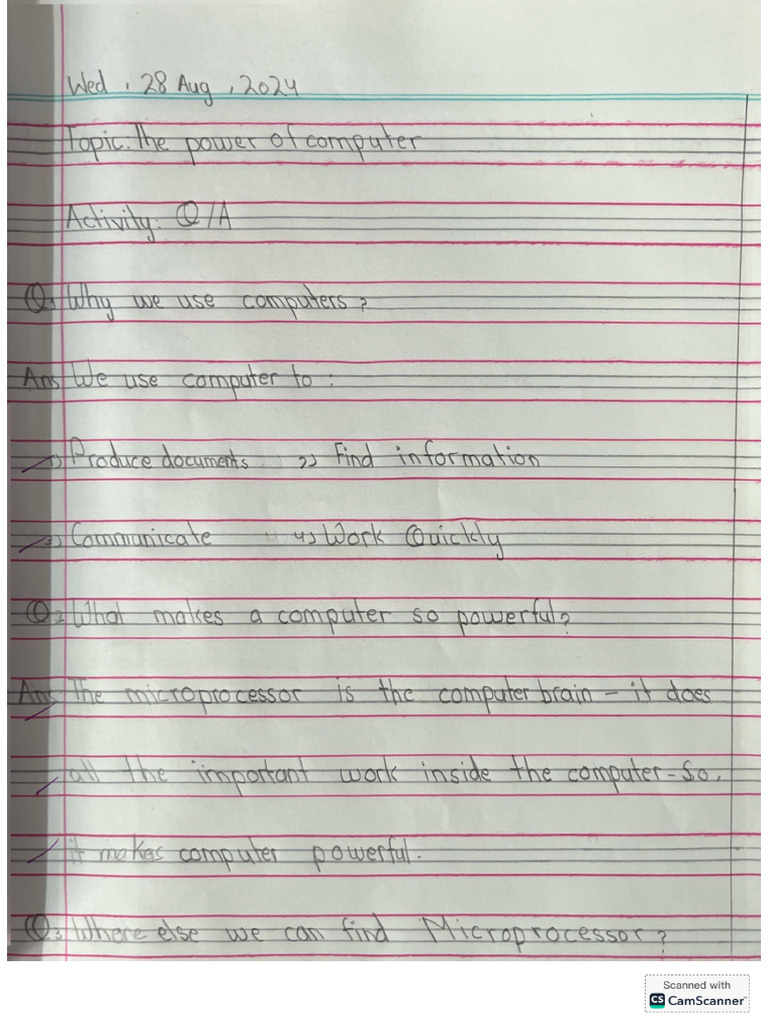 Wed, 28 Aug, 2024
Topic: The power of computer
Activity: Q/A
Q1 Why we use computers?
Ans We use computer to :
1) Produce documents 2) Find information
3) Communicate 4) Work Quickly
Q2 What makes a computer so powerful?
Ans The microprocessor is the computer brain – it does
all the important work inside the computer – So,
it makes computer powerful.
Q3 Where else we can find Microprocessor?
Scanned with
CS CamScanner